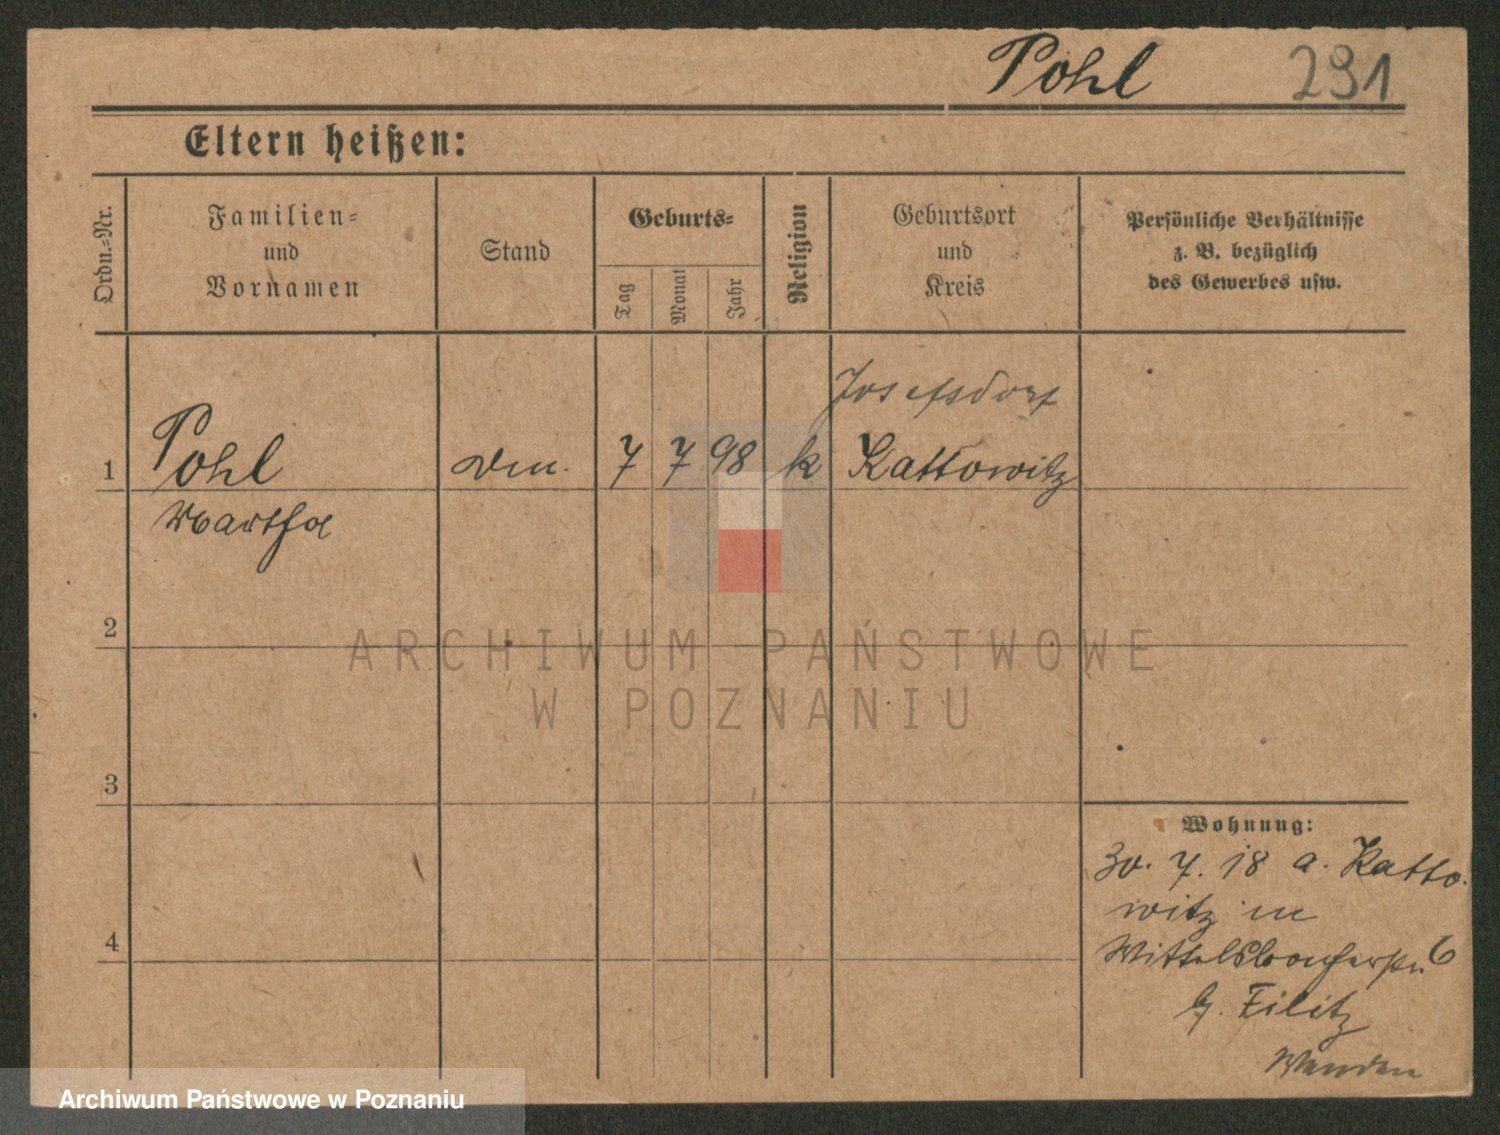 Pohl 291
Eltern heißen:
Ordn.-Nr.
Familien-
und
Vornamen
Stand
Geburts-
Tag
Monat
Jahr
Religion
Geburtsort
und
Kreis
Persönliche Verhältnisse
z. B. bezüglich
des Gewerbes usw.
Josefsdorf
1 Pohl 7 7 98 k Kattowitz
Martha
2
ARCHIWUM PAŃSTWOWE
W POZNANIU
3
Wohnung:
30. 7. 18 a. Katto
witz in
4
Wittelsbacherstr. 6
b. Filitz
Archiwum Państwowe w Poznaniu